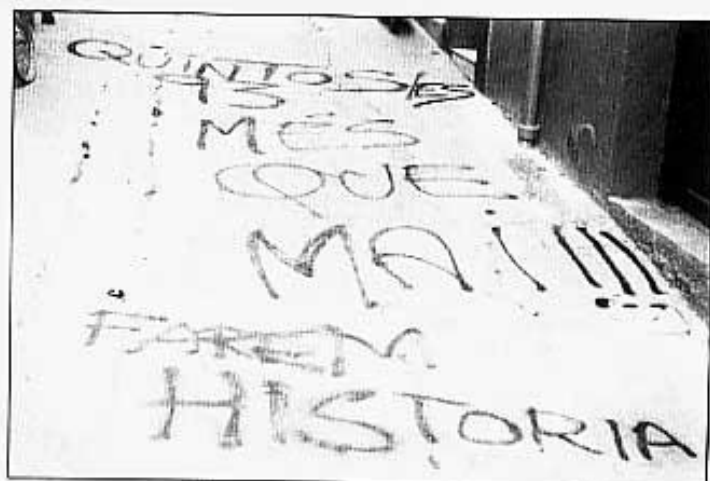 QUINTOS/ES
93
MÉS
QUE
MAI!!!
FAREM
HISTORIA